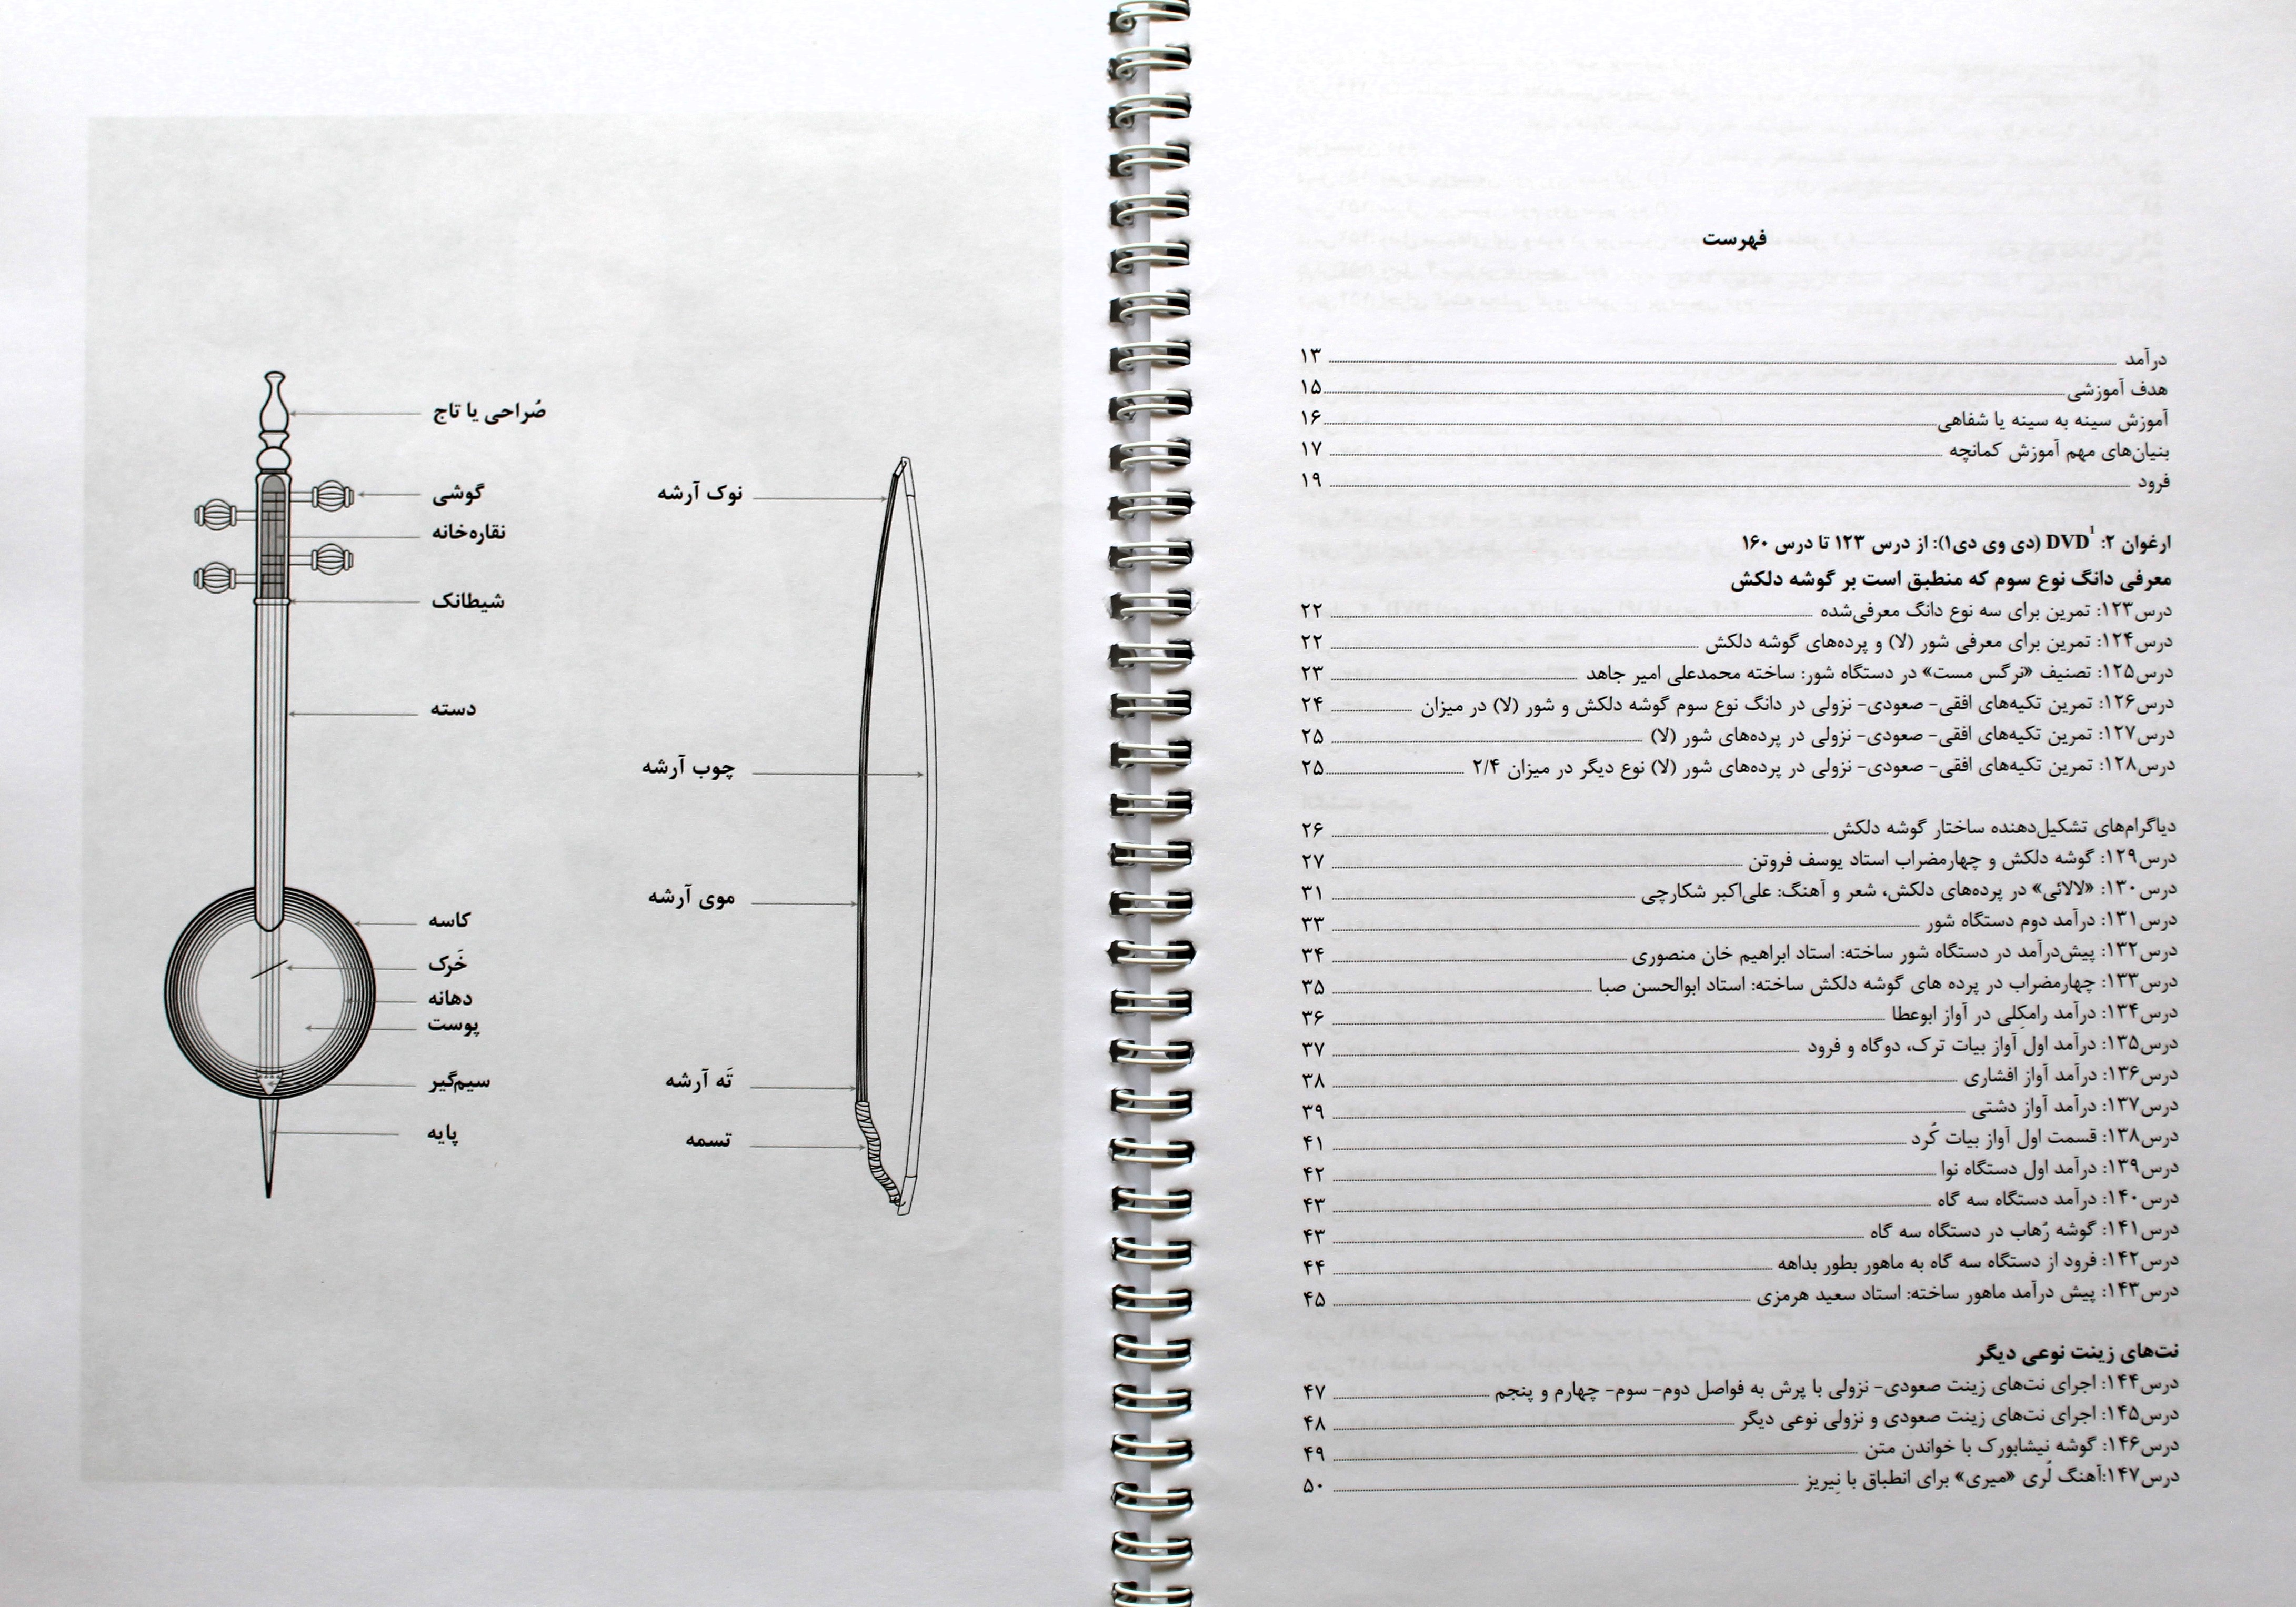 صُراحی یا تاج
گوشی
نقاره‌خانه
شیطانک
دسته
کاسه
خَرک
دهانه
پوست
سیم‌گیر
پایه
نوک آرشه
چوب آرشه
موی آرشه
تَه آرشه
تسمه
فهرست
درآمد ۱۳
هدف آموزشی ۱۵
آموزش سینه به سینه یا شفاهی ۱۶
بنیان‌های مهم آموزش کمانچه ۱۷
فرود ۱۹
ارغوان ۲: DVD1 (دی وی دی۱): از درس ۱۲۳ تا درس ۱۶۰
معرفی دانگ نوع سوم که منطبق است بر گوشه دلکش
درس۱۲۳: تمرین برای سه نوع دانگ معرفی‌شده ۲۲
درس۱۲۴: تمرین برای معرفی شور (لا) و پرده‌های گوشه دلکش ۲۲
درس۱۲۵: تصنیف «نرگس مست» در دستگاه شور: ساخته محمدعلی امیر جاهد ۲۳
درس۱۲۶: تمرین تکیه‌های افقی- صعودی- نزولی در دانگ نوع سوم گوشه دلکش و شور (لا) در میزان ۲۴
درس۱۲۷: تمرین تکیه‌های افقی- صعودی- نزولی در پرده‌های شور (لا) ۲۵
درس۱۲۸: تمرین تکیه‌های افقی- صعودی- نزولی در پرده‌های شور (لا) نوع دیگر در میزان ۲/۴ ۲۵
دیاگرام‌های تشکیل‌دهنده ساختار گوشه دلکش ۲۶
درس۱۲۹: گوشه دلکش و چهارمضراب استاد یوسف فروتن ۲۷
درس۱۳۰: «لالائی» در پرده‌های دلکش، شعر و آهنگ: علی‌اکبر شکارچی ۳۱
درس۱۳۱: درآمد دوم دستگاه شور ۳۳
درس۱۳۲: پیش‌درآمد در دستگاه شور ساخته: استاد ابراهیم خان منصوری ۳۴
درس۱۳۳: چهارمضراب در پرده های گوشه دلکش ساخته: استاد ابوالحسن صبا ۳۵
درس۱۳۴: درآمد رامکِلی در آواز ابوعطا ۳۶
درس۱۳۵: درآمد اول آواز بیات ترک، دوگاه و فرود ۳۷
درس۱۳۶: درآمد آواز افشاری ۳۸
درس۱۳۷: درآمد آواز دشتی ۳۹
درس۱۳۸: قسمت اول آواز بیات کُرد ۴۱
درس۱۳۹: درآمد اول دستگاه نوا ۴۲
درس۱۴۰: درآمد دستگاه سه گاه ۴۳
درس۱۴۱: گوشه رُهاب در دستگاه سه گاه ۴۳
درس۱۴۲: فرود از دستگاه سه گاه به ماهور بطور بداهه ۴۴
درس۱۴۳: پیش درآمد ماهور ساخته: استاد سعید هرمزی ۴۵
نت‌های زینت نوعی دیگر
درس۱۴۴: اجرای نت‌های زینت صعودی- نزولی با پرش به فواصل دوم- سوم- چهارم و پنجم ۴۷
درس۱۴۵: اجرای نت‌های زینت صعودی و نزولی نوعی دیگر ۴۸
درس۱۴۶: گوشه نیشابورک با خواندن متن ۴۹
درس۱۴۷:آهنگ لُری «میری» برای انطباق با نِیریز ۵۰